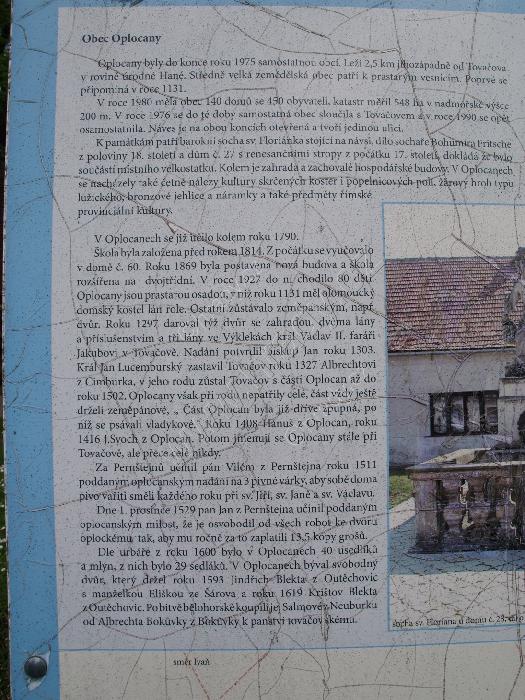 Obec Oplocany
Oplocany byly do konce roku 1975 samostatnou obcí. Leží 2,5 km jihozápadně od Tovačova
v rovině úrodné Hané. Středně velká zemědělská obec patří k prastarým vesnicím. Poprvé se
připomíná v roce 1131.
V roce 1980 měla obec 140 domů se 450 obyvateli, katastr měřil 548 ha v nadmořské výšce
200 m. V roce 1976 se do té doby samostatná obec sloučila s Tovačovem a v roce 1990 se opět
osamostatnila. Náves je na obou koncích otevřená a tvoří jedinou ulici.
K památkám patří barokní socha sv. Floriánka stojící na návsi, dílo sochaře Bohumíra Fritsche
z poloviny 18. století a dům č. 27 s renesančními stropy z počátku 17. století, dokládá že bylo
součástí místního velkostatku. Kolem je zahrada a zachovalé hospodářské budovy. V Oplocanech
se nacházely také četné nálezy kultury skrčených koster i popelnicových polí, žárový hrob typu
lužického, bronzové jehlice a náramky a také předměty římské
provinciální kultury.
V Oplocanech se již učilo kolem roku 1790.
Škola byla založena před rokem 1814. Z počátku se vyučovalo
v domě č. 60. Roku 1869 byla postavena nová budova a škola
rozšířena na dvojtřídní. V roce 1927 do ní chodilo 80 dětí.
Oplocany jsou prastarou osadou, v níž roku 1131 měl olomoucký
domský kostel lán role. Ostatní zůstávalo zeměpanským, např.
dvůr. Roku 1297 daroval týž dvůr se zahradou, dvěma lány
a příslušenstvím a tři lány ve Výklekách král Václav II. faráři
Jakubovi v Tovačově. Nadání potvrdil biskup Jan roku 1303.
Král Jan Lucemburský zastavil Tovačov roku 1327 Albrechtovi
z Cimburka, v jeho rodu zůstal Tovačov s částí Oplocan až do
roku 1502. Oplocany však při rodu nepatřily celé, část vždy ještě
drželi zeměpánové. „ Část Oplocan byla již dříve zpupná, po
níž se psávali vladykové." Roku 1408 Hanuš z Oplocan, roku
1416 J.Svoch z Oplocan. Potom jmenují se Oplocany stále při
Tovačově, ale přece celé nikdy.
Za Pernštejnů učinil pán Vilém z Pernštejna roku 1511
poddaným oplocanským nadání na 3 pivné várky, aby sobě doma
pivo vařiti směli každého roku při sv. Jiří, sv. Janě a sv. Václavu.
Dne 1. prosince 1529 pan Jan z Pernštejna učinil poddaným
oplocanským milost, že je osvobodil od všech robot ke dvoru
oplockému, tak, aby mu ročně za to zaplatili 13,5 kopy grošů.
Dle urbáře z roku 1600 bylo v Oplocanech 40 usedlíků
a mlýn, z nich bylo 29 sedláků. V Oplocanech býval svobodný
dvůr, který držel roku 1593 Jindřich Blekta z Outěchovic
s manželkou Eliškou ze Šárova a roku 1619 Krištov Blekta
z Outěchovic. Po bitvě bělohorské koupili je Salmové z Neuburku
od Albrechta Bokůvky z Bokůvky k panství tovačovskému.
socha sv. Floriána u domu č. 23,
směr Ivaň